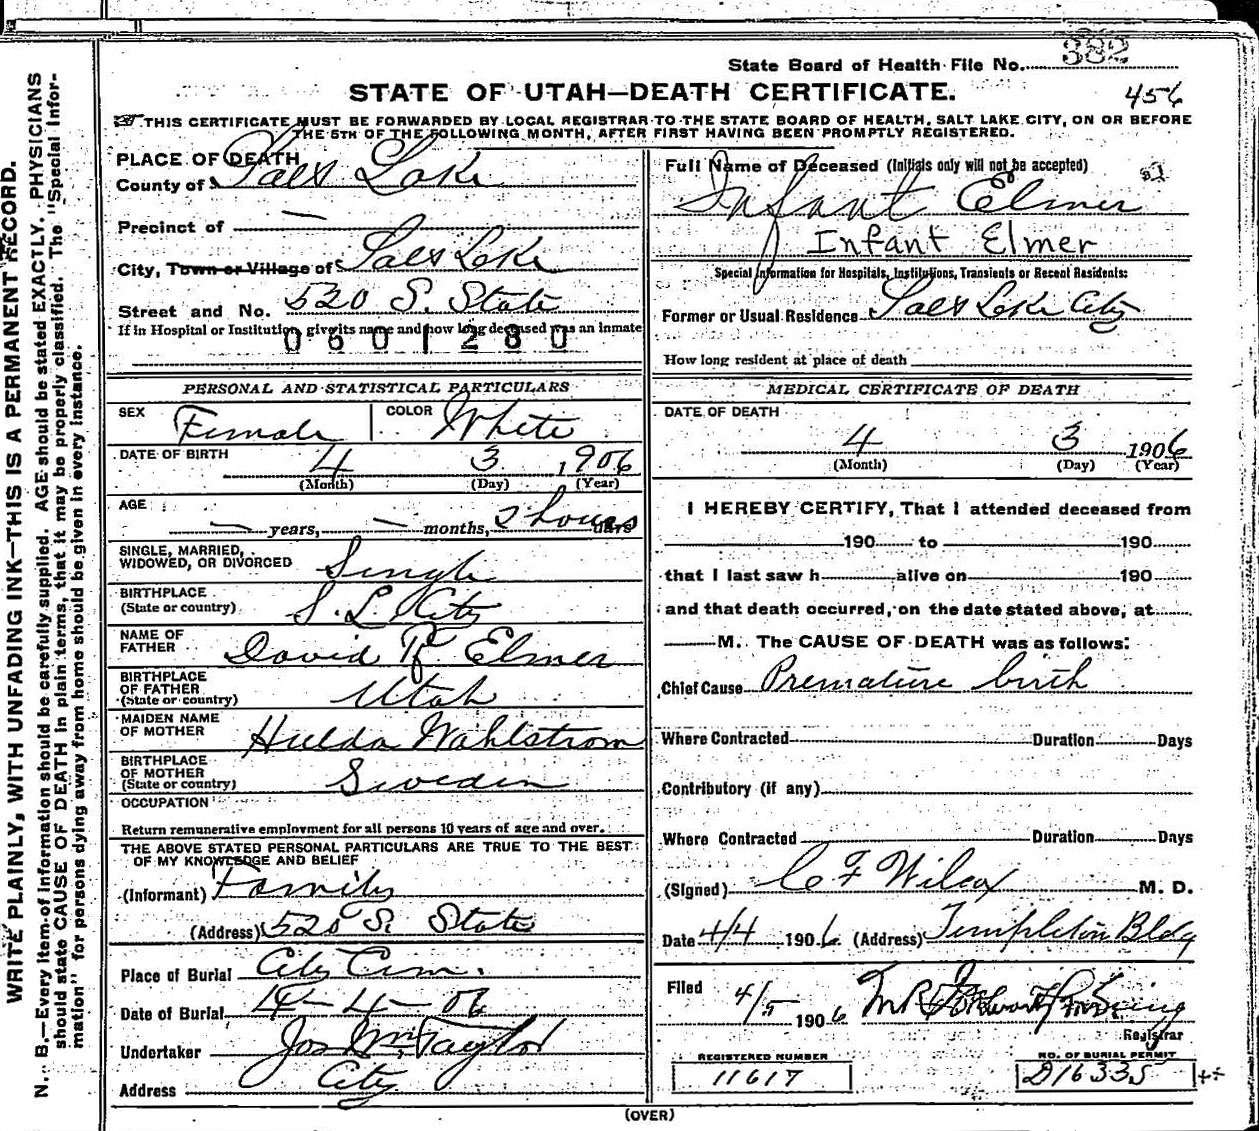 State Board of Health File No. 382
STATE OF UTAH—DEATH CERTIFICATE. 456
THIS CERTIFICATE MUST BE FORWARDED BY LOCAL REGISTRAR TO THE STATE BOARD OF HEALTH, SALT LAKE CITY, ON OR BEFORE
THE 5TH OF THE FOLLOWING MONTH, AFTER FIRST HAVING BEEN PROMPTLY REGISTERED.
WRITE PLAINLY, WITH UNFADING INK—THIS IS A PERMANENT RECORD.
N. B.—Every item of information should be carefully supplied. AGE should be stated EXACTLY. PHYSICIANS
should state CAUSE OF DEATH in plain terms, that it may be properly classified. The "Special Infor-
mation" for persons dying away from home should be given in every instance.
PLACE OF DEATH
County of Salt Lake
Precinct of —
City, Town or Village of Salt Lake
Street and No. 520 S. State
If in Hospital or Institution, give its name and how long deceased was an inmate
0601280
PERSONAL AND STATISTICAL PARTICULARS
SEX Female COLOR White
DATE OF BIRTH 4 3 1906
(Month) (Day) (Year)
AGE
— years, — months, 2 hours days
SINGLE, MARRIED,
WIDOWED, OR DIVORCED Single
BIRTHPLACE
(State or country) S. L. City
NAME OF
FATHER David R Elmer
BIRTHPLACE
OF FATHER
(State or country) Utah
MAIDEN NAME
OF MOTHER Hulda Wahlstrom
BIRTHPLACE
OF MOTHER
(State or country) Sweden
OCCUPATION
Return remunerative employment for all persons 10 years of age and over.
THE ABOVE STATED PERSONAL PARTICULARS ARE TRUE TO THE BEST
OF MY KNOWLEDGE AND BELIEF
(Informant) Family
(Address) 520 S. State
Place of Burial City Cem.
Date of Burial 4-4-06
Undertaker Jos Wm Taylor
Address City
Full Name of Deceased (Initials only will not be accepted)
Infant Elmer
Infant Elmer
Special Information for Hospitals, Institutions, Transients or Recent Residents:
Former or Usual Residence Salt Lake City
How long resident at place of death
MEDICAL CERTIFICATE OF DEATH
DATE OF DEATH
4 3 1906
(Month) (Day) (Year)
I HEREBY CERTIFY, That I attended deceased from
190 to 190
that I last saw h alive on 190
and that death occurred, on the date stated above, at
M. The CAUSE OF DEATH was as follows:
Chief Cause Premature birth
Where Contracted Duration Days
Contributory (if any)
Where Contracted Duration Days
(Signed) C F Wilcox M. D.
Date 4/4 1906 (Address) Templeton Bldg
Filed 4/5 1906
Registrar
REGISTERED NUMBER
11617
NO. OF BURIAL PERMIT
D16335
(OVER)